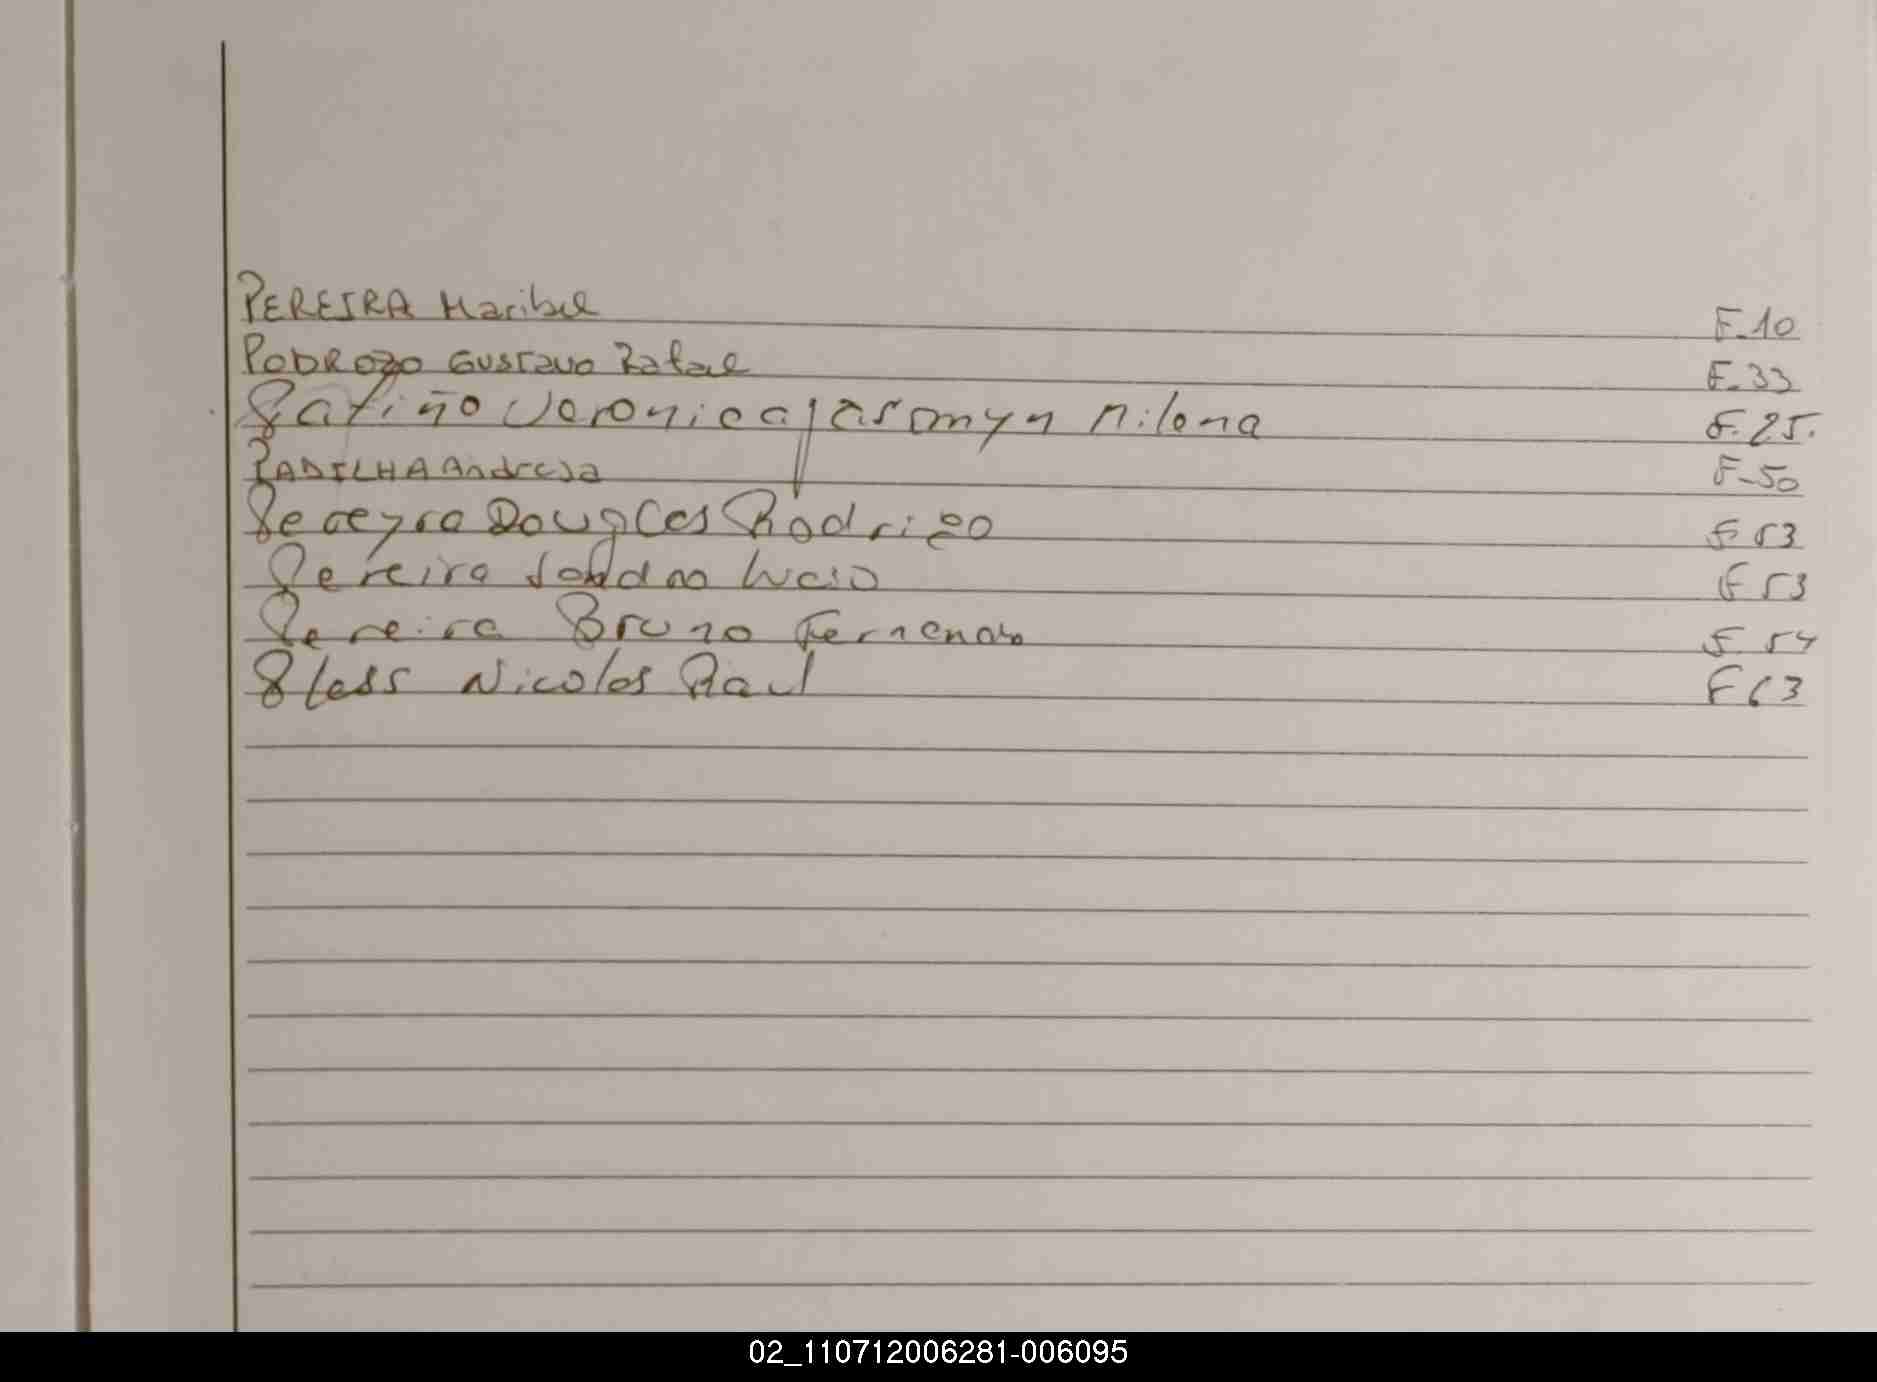 PEREIRA Maribel F.10
PODROZO Gustavo Rafael F.33
Patiño Veronica Jasomyn Milena F.25.
PADILHA Andresa F-50
Pereyra Douglas Rodrigo F 53
Pereira F 53
Pereira Bruno Fernando F. 54
Pless Nicolas Raul F 63
02_110712006281-006095